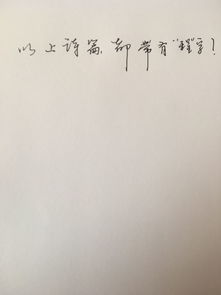 以上诗篇都带有"程"字!